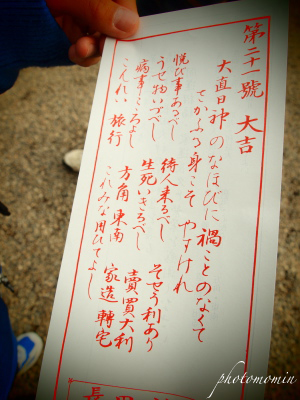 第二十一號 大吉
大直日神のなほびに禍ことのなくて
さかふる身こそやすけれ
悦び事あるべし
待人来るべし
そせう利あり
うせ物いづべし
生死いきるべし
賣買大利
病事こころよし
方角東南
家造 轉宅
こんれい 旅行
これみな用ひてよし
photomomin